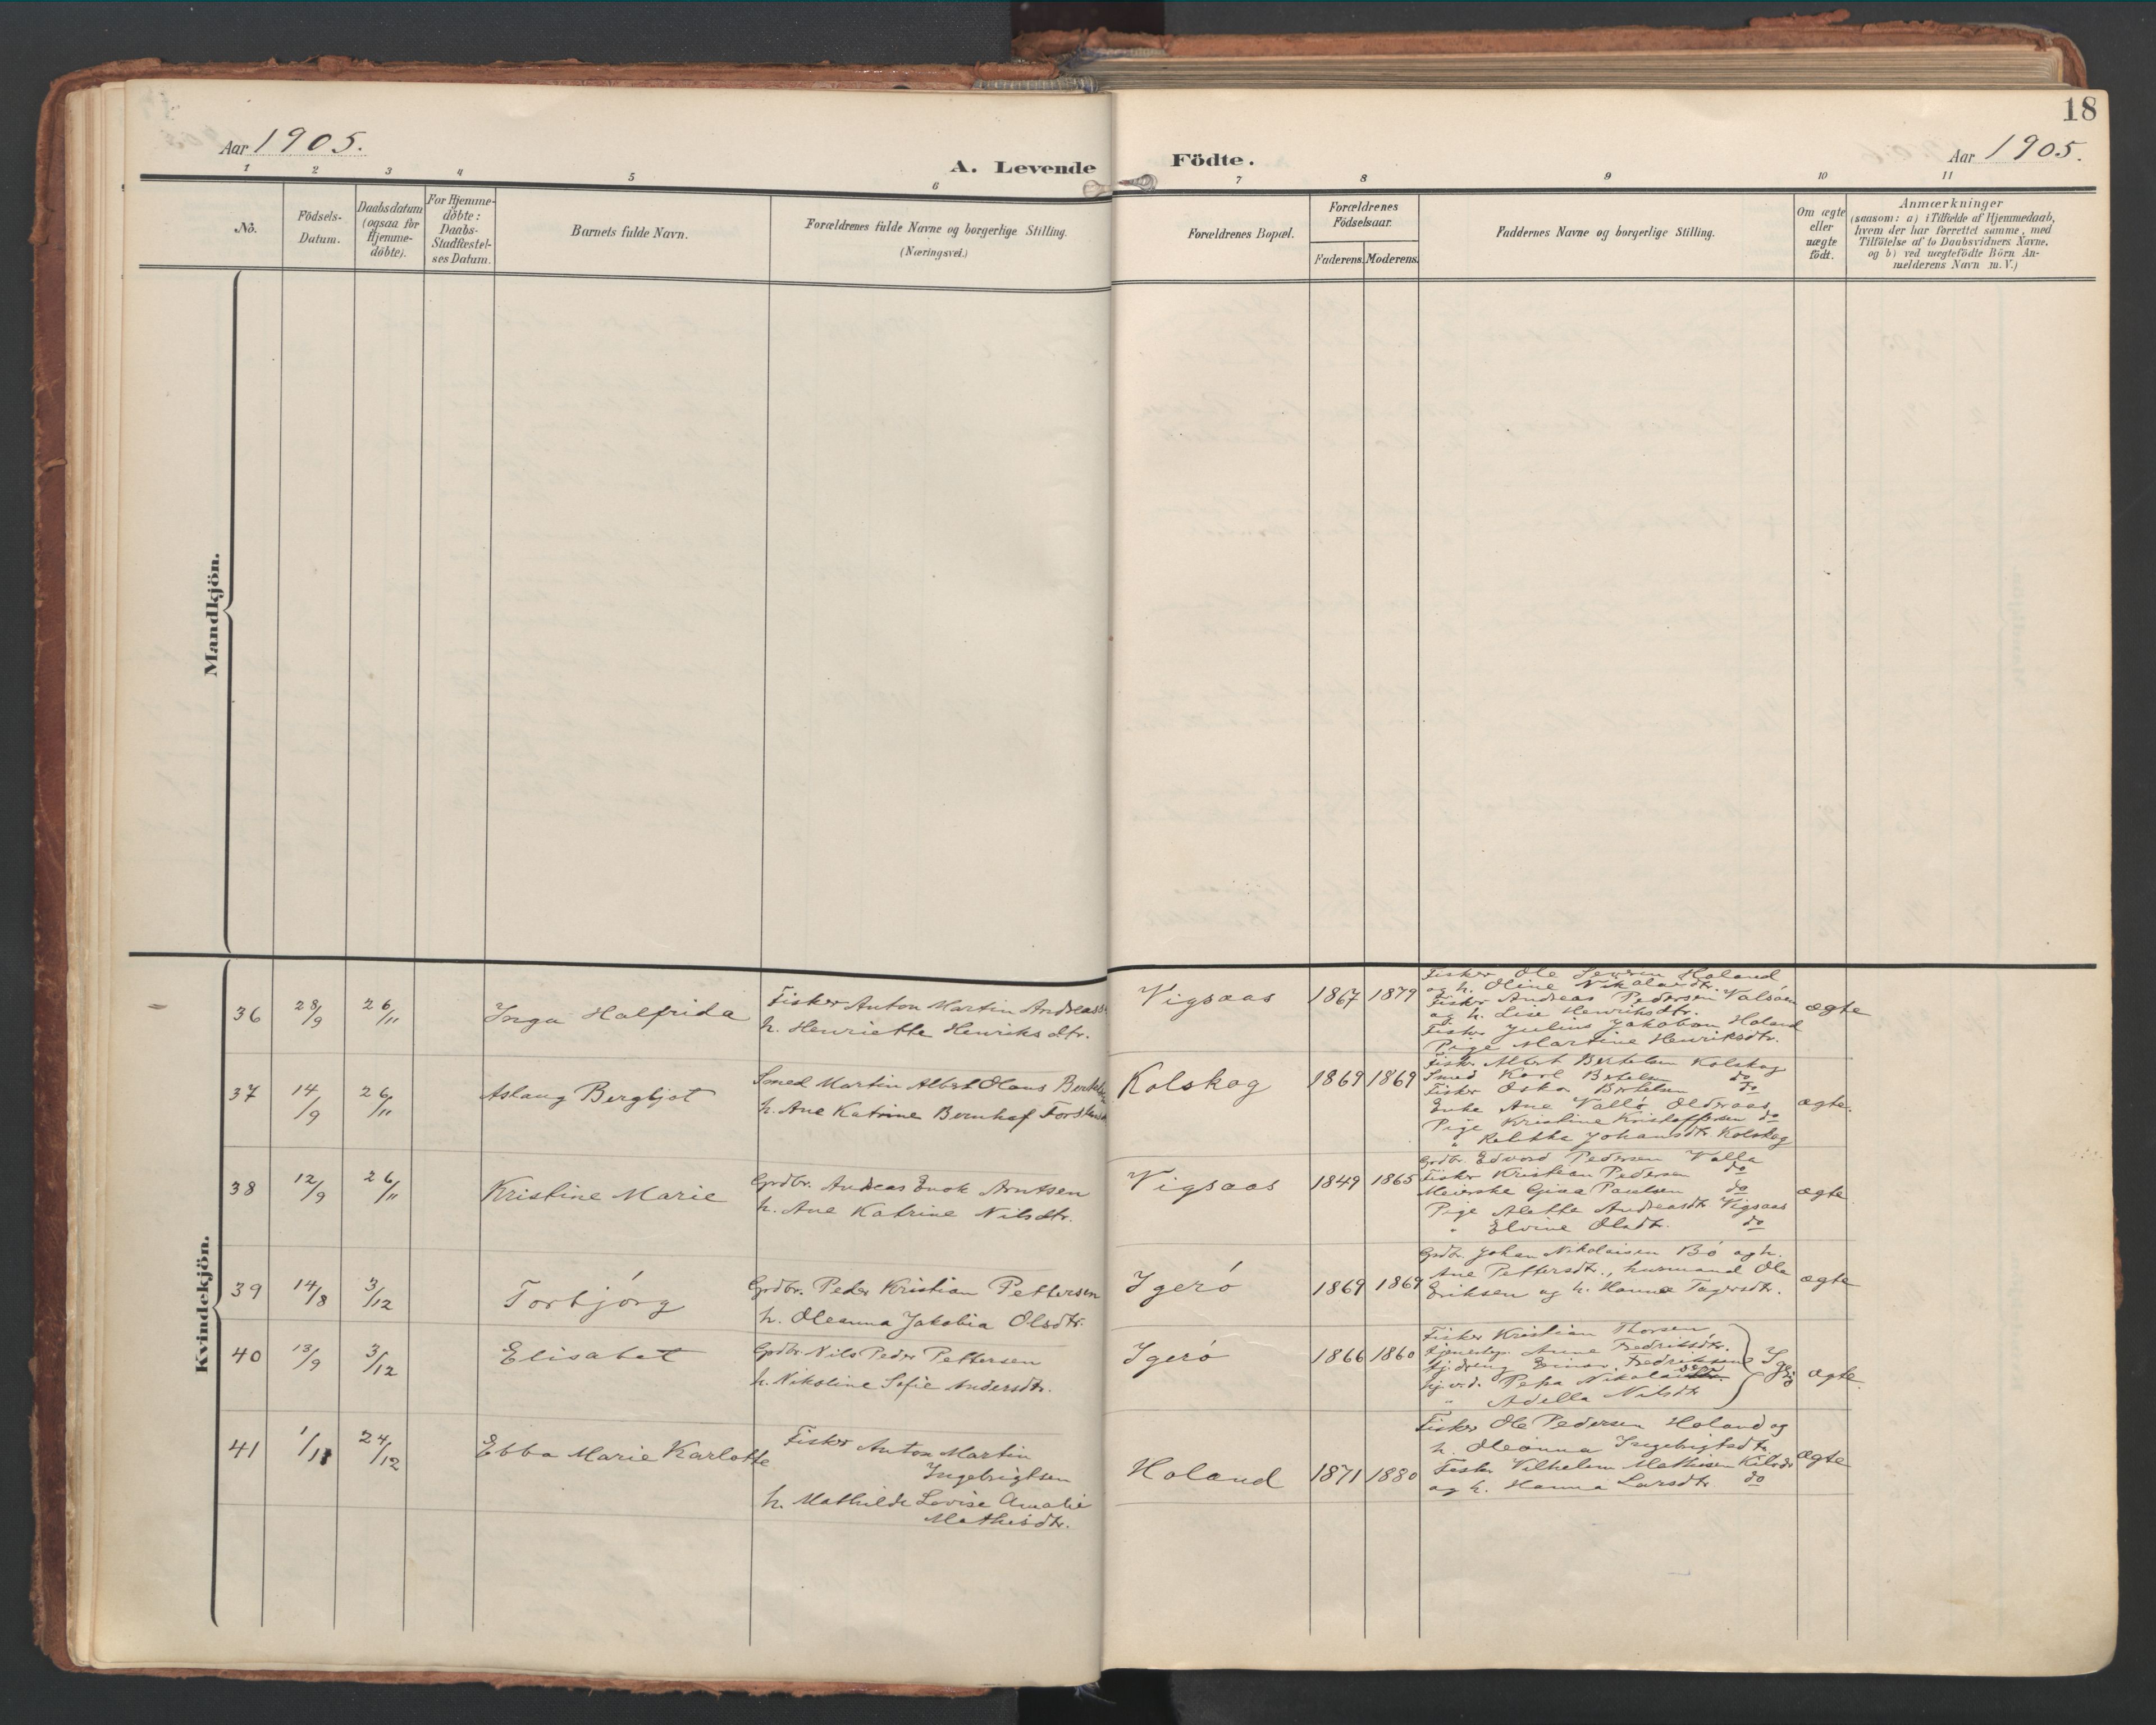 18
Aar 1905.
A. Levende Födte.
Aar 1905.
1 2 3 4 5 6 7 8 9 10 11
No.
Födsels-
Datum.
Daabsdatum
(ogsaa for
Hjemme-
döbte).
For Hjemme-
döbte:
Daabs-
Stadfæstel-
ses Datum.
Barnets fulde Navn.
Forældrenes fulde Navne og borgerlige Stilling.
(Næringsvei.)
Forældrenes Bopæl.
Forældrenes
Födselsaar.
Faderens. Moderens.
Faddernes Navne og borgerlige Stilling.
Om ægte
eller
uægte
födt.
Anmærkninger
(saasom: a) i Tilfælde af Hjemmedaab,
hvem der har forrettet samme, med
Tilföielse af to Daabsvidners Navne.
og b) ved uægtefödte Börn An-
melderens Navn m. V.)
Mandkjön.
Kvindekjön.
36 28/9 26/11 Inga Halfrida
Fisker Anton Martin
h. Henriette Henriksdtr.
Vigsaas 1867 1879
Fisker Ole Holand
og h. Oline
Fisker Andreas Pedersen
og h. Lise Henriksdtr.
Fisker Julius Jakobsen Holand
Pige Martine Henriksdtr.
ægte
37 14/9 26/11 Aslaug Bergljot
Smed Martin Albert Olaus
h. Ane Katrine Bernhof
Kolskog 1869 1869
Fisker Albert Bertelsen Kolskog
Smed Karl Bertelsen do
Fisker Oskar Bertelsen do
Enke Ane Vallö Olderaas
Pige Kristine Kristoffersen do
" Johansdtr. Kolskog
ægte.
38 12/9 26/11 Kristine Marie
Grdbr. Andreas Enok Arntsen
h. Ane Katrine Nilsdtr.
Vigsaas 1849 1865
Grdbr. Edvard Pedersen Valla
Fisker Kristian Pedersen do
Meierske Gina Paulsen do
Pige Alette Andreasdtr. Vigsaas
" Elvine Olsdtr. do
ægte
39 14/8 3/12 Torbjórg
Grdbr. Peder Kristian Pettersen
h. Oleanna Jakobia Olsdtr.
Igeró 1869 1869
Grdbr. Johan Nikolaisen Bó og h.
Ane Pettersdtr., husmand Ole
Eriksen og h. Hanna
ægte
40 13/9 3/12 Elisabet
Grdbr. Nils Peder Pettersen
h. Nikoline Sofie Andersdtr.
Igeró 1866 1860
Fisker Kristian Thorsen
Anne Fredriksdtr.
Einar Fredriksen
Petra
" Adella Nilsdtr.
Igeró
ægte.
41 1/11 24/12 Ebba Marie Karlotte
Fisker Anton Martin
Ingebrigtsen
h. Mathilde Lovise Amalie
Mathisdtr.
Holand 1871 1880
Fisker Ole Pedersen Holand og
h. Oleanna Ingebrigtsdtr.
Fisker Vilhelm Mathisen
og h. Hanna Larsdtr. do
ægte